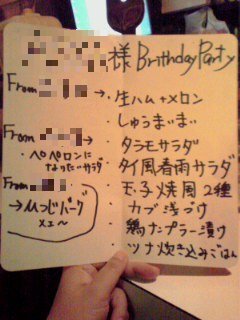 様 Birthday Party
From
→・生ハム+メロン
・しゅうまいまい
From →
・タラモサラダ
・ペペロンに
なりたいサラダ
・タイ風春雨サラダ
From
・玉子焼風2種
→ひつじパーク
メェ〜
・カブ浅づけ
・鶏ナンプラー漬け
・ツナ炊き込みごはん